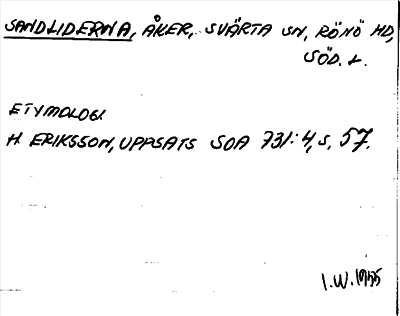 SANDLIDERNA, ÅKER, SVÄRTA SN, RÖNÖ HD,
SÖD. L.
ETYMOLOGI
H ERIKSSON, UPPSATS SOA 731:4, S. 57.
I.W. 1955